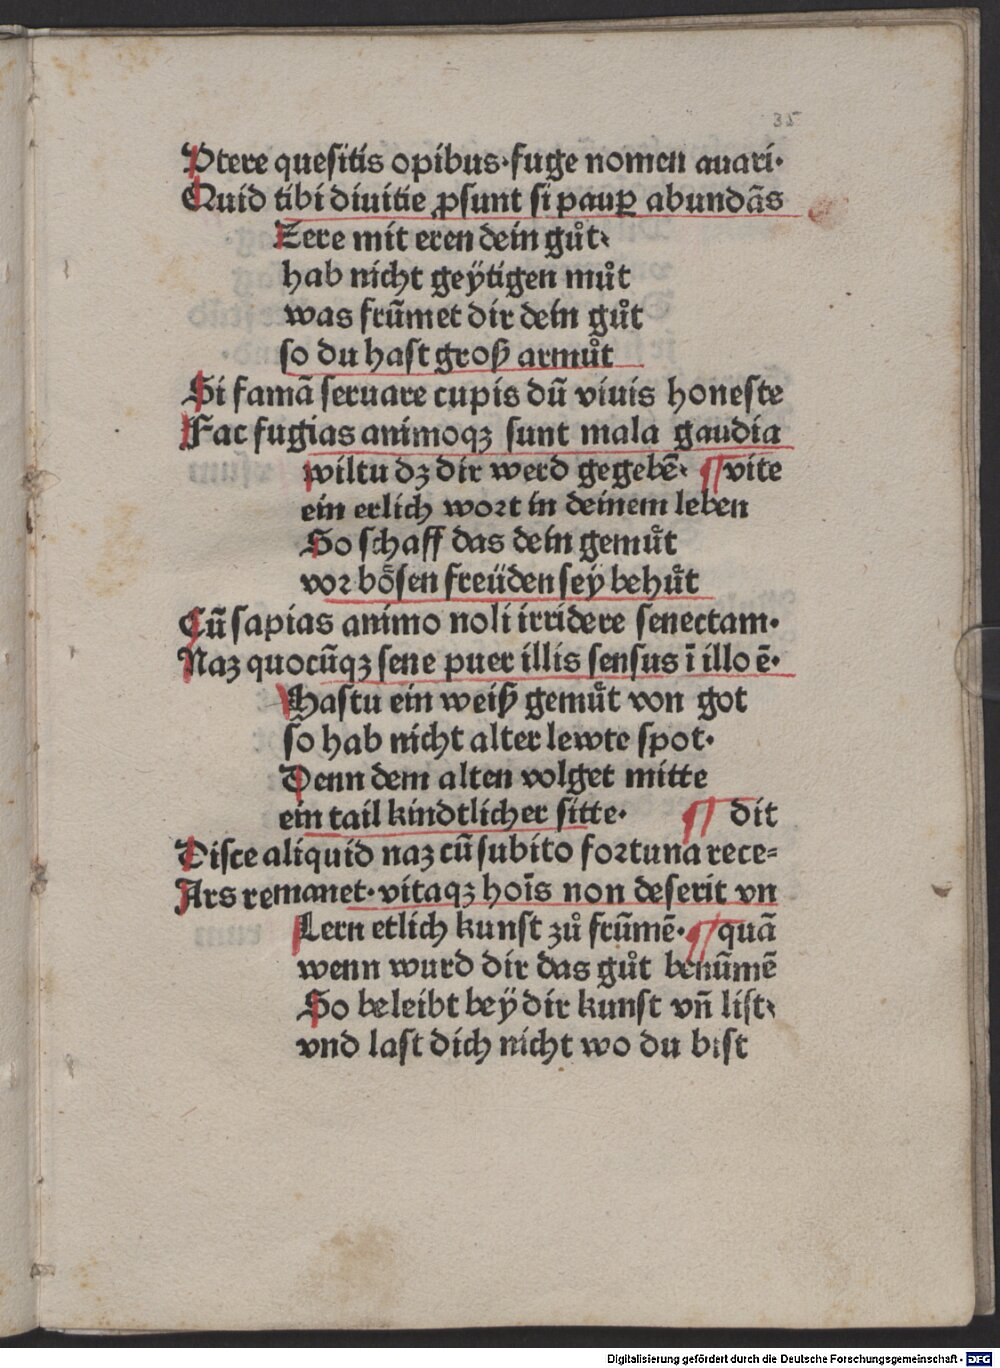 35
Vtere quesitis opibus·fuge nomen auari·
Quid tibi diuitie ꝓsunt si pauꝑ abundãs
Zere mit eren dein gůt:
hab nicht geÿtigen můt
was frũmet dir dein gůt
so du hast groß armůt
Si famã seruare cupis dũ viuis honeste
Fac fugias animoqꝫ sunt mala gaudia
wiltu dꝫ dir werd gegebẽ· ¶ vite
ein erlich wort in deinem leben
So schaff das dein gemuͤt
vor boͤsen freüden sey behuͤt
Cũ sapias animo noli irridere senectam·
Naꝫ quocũqꝫ sene puer illis sensus ĩ illo ẽ·
Hastu ein weiß gemuͤt von got
so hab nicht alter lewte spot·
Denn dem alten volget mitte
ein tail kindtlicher sitte· ¶ dit
Disce aliquid naꝫ cũ subito fortuna rece=
Ars remanet·vitaqꝫ hoĩs non deserit vn
Lern etlich kunst zů frũmẽ· ¶ quã
wenn wurd dir das gůt benũmẽ
So beleibt beÿ dir kunst vñ list:
vnd last dich nicht wo du bist
Digitalisierung gefördert durch die Deutsche Forschungsgemeinschaft - DFG